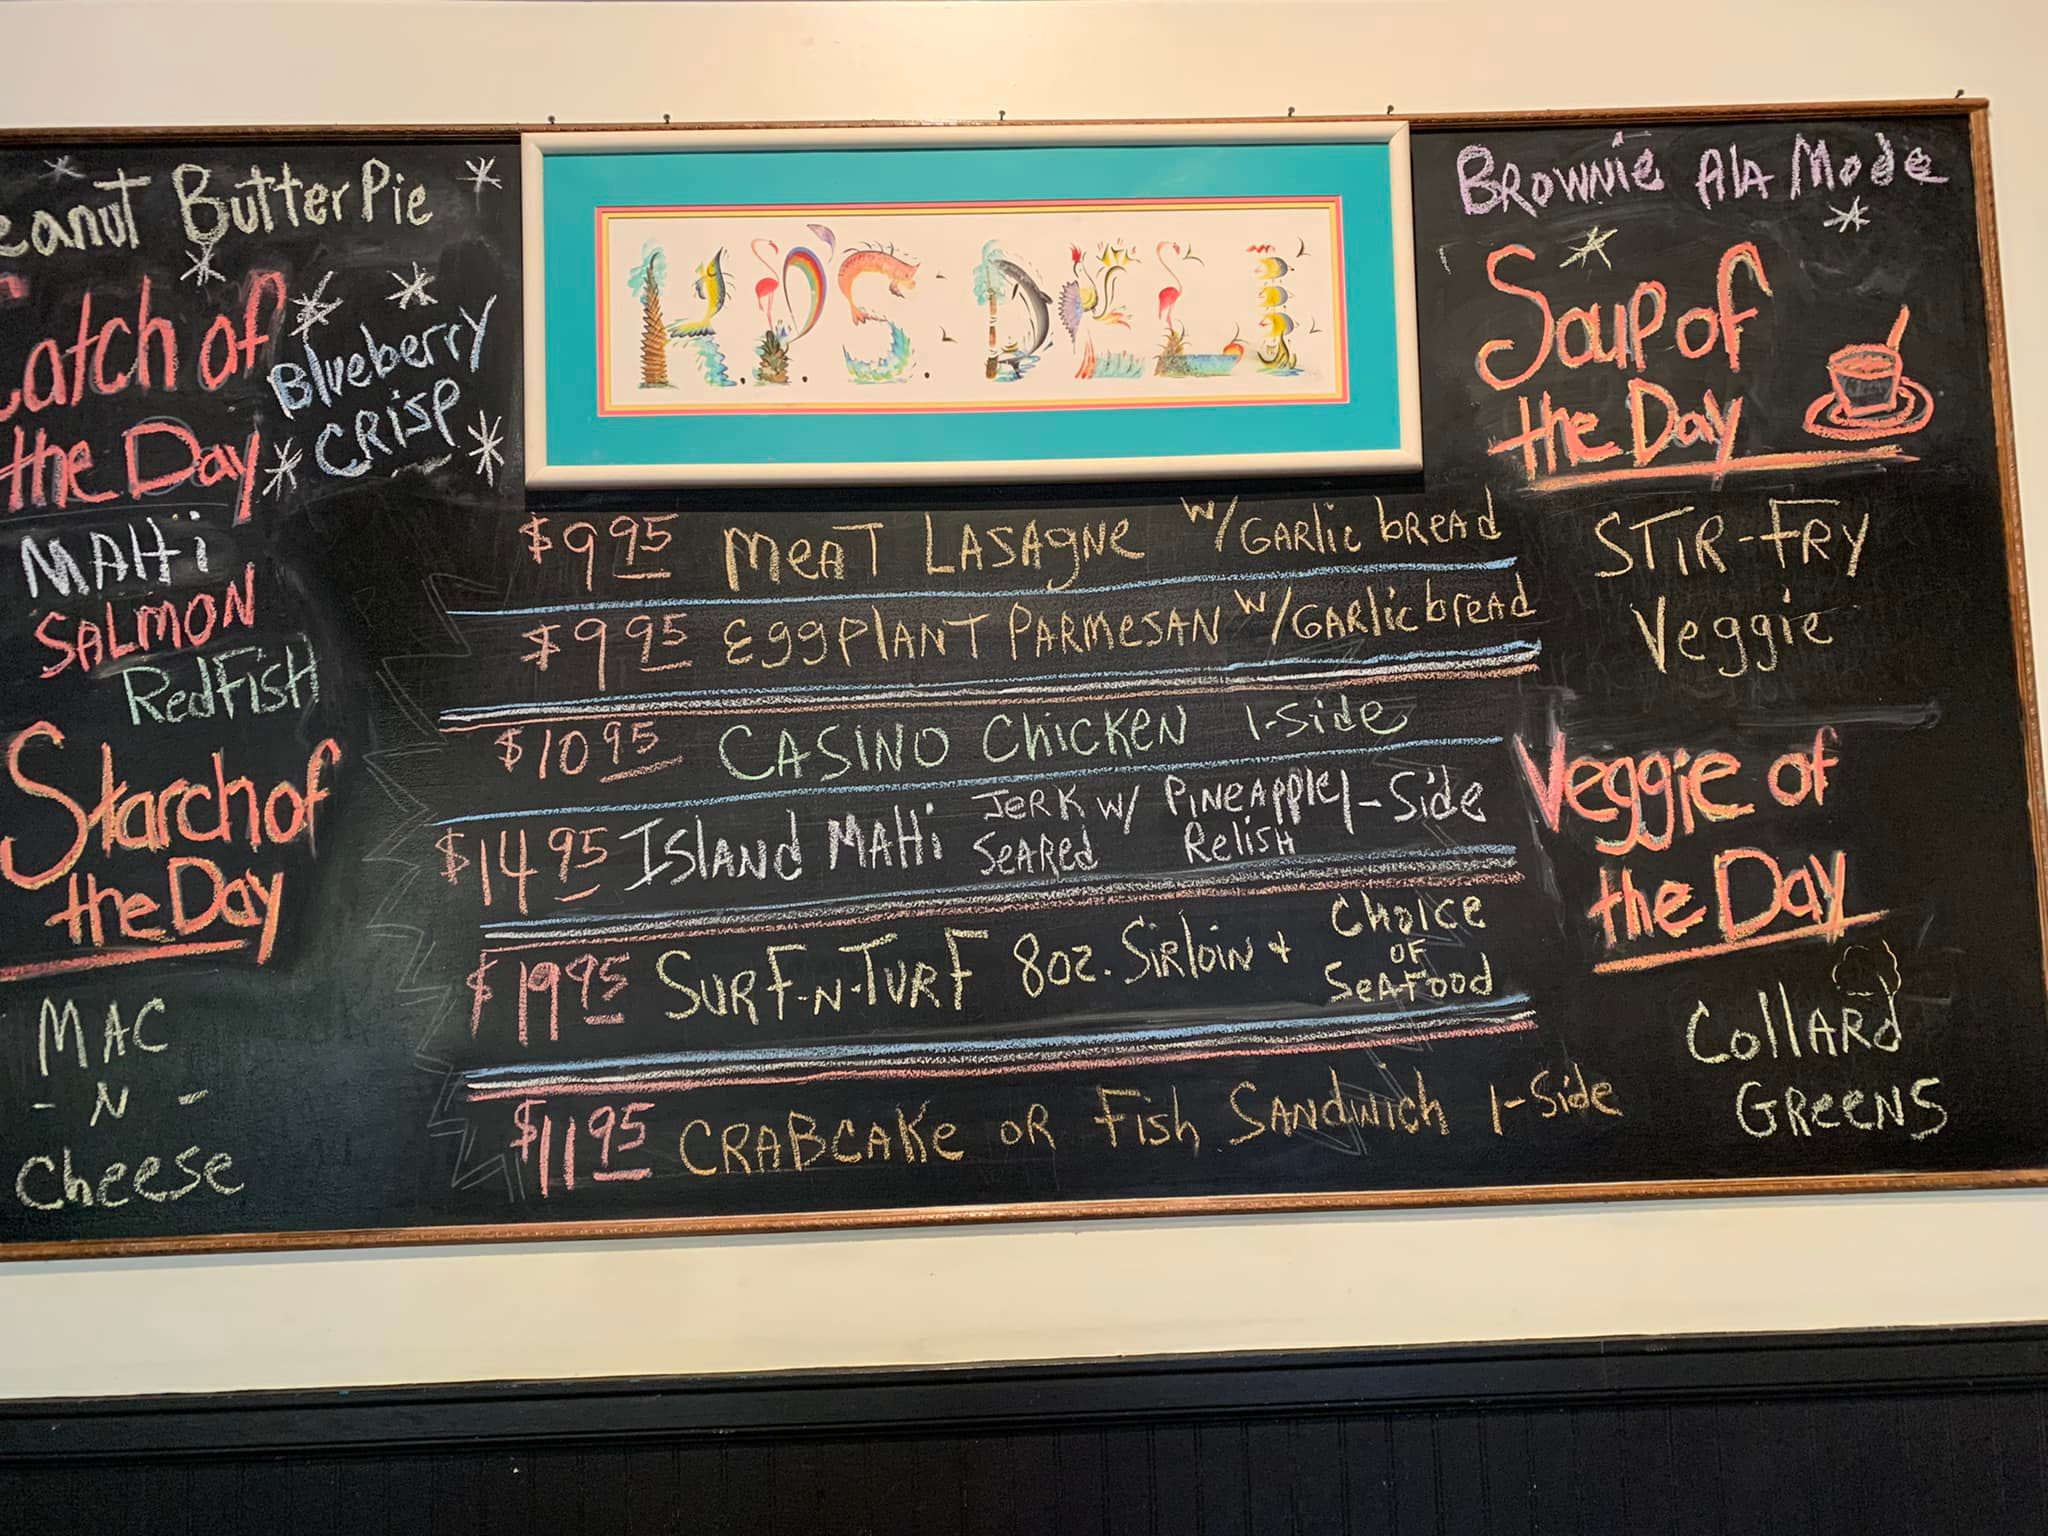 eanut Butter Pie
Catch of
the Day
Blueberry
Crisp
MAHi
SALMON
RedFisH
Starch of
the Day
MAC
- N -
Cheese
K.P.S. DELI
$9 95 MeAT LASAgNE W/GARlic bREAd
$9 95 EggPlANT PARMESAN W/GARlic bread
$10 95 CASINO CHicKEN 1-Side
$14 95 IslANd MAHi JERK SEARed W/ PiNEAPPlE Relish 1-Side
$19 95 SURF-N-TURF 8oz. SiRloiN + CHoice OF SEAFood
$11 95 CRABCAKE OR Fish SANdwich 1-Side
BROWNiE AlA Mode
Soup of
the Day
STiR-FRY
Veggie
Veggie of
the Day
CollARd
GReeNS